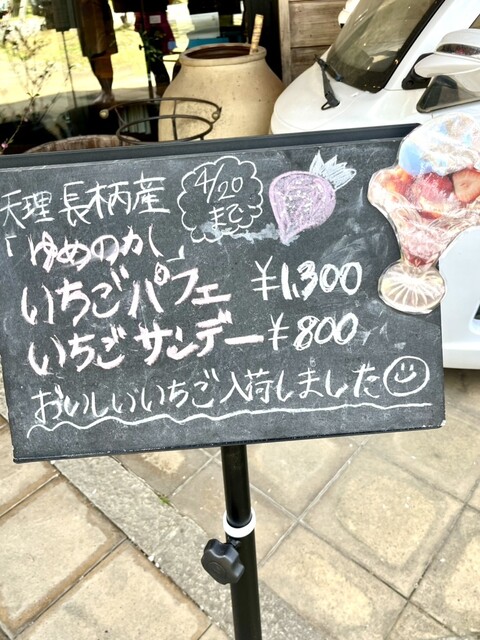 天理 長柄産
4/20
まで
「ゆめのか」
いちごパフェ ¥1,300
いちごサンデー ¥800
おいしいいちご入荷しました